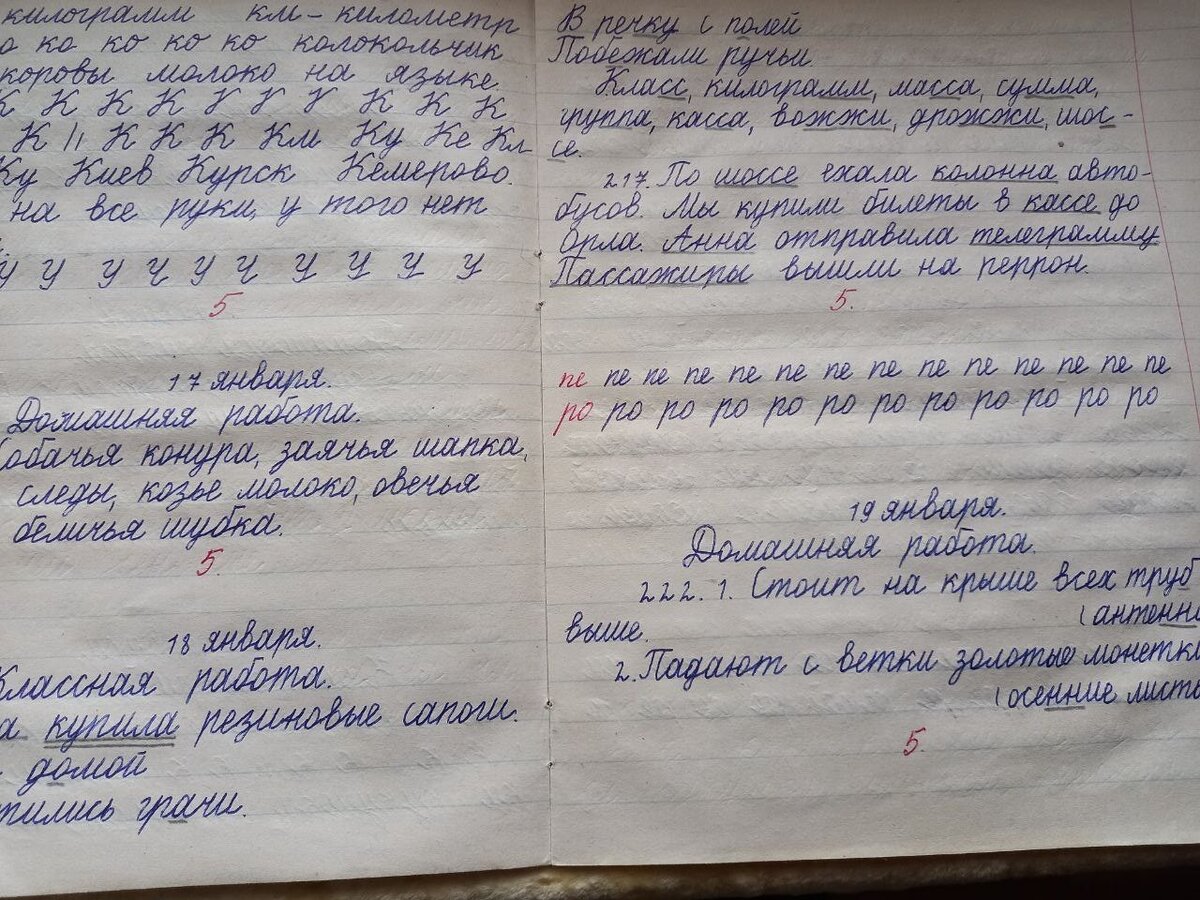 килограмм км – километр
о ко ко ко ко колокольчик
коровы молоко на языке.
К К К К V V V К К К
К // К К К Км Ку Ке Кл
Ку Киев Курск Кемерово.
на все руки, у того нет
у у у ч у ч у у у у
5
17 января.
Домашняя работа.
Собачья конура, заячья шапка,
следы, козье молоко, овечья
беличья шубка.
5.
18 января.
Классная работа.
а купила резиновые сапоги.
домой
тились грачи.
В речку с полей
Побежали ручьи
Класс, килограмм, масса, сумма,
группа, касса, вожжи, дрожжи, шос-
се.
217. По шоссе ехала колонна авто-
бусов. Мы купили билеты в кассе до
Орла. Анна отправила телеграмму
Пассажиры вышли на перрон.
5.
пе пе пе пе пе пе пе пе пе пе пе пе пе
ро ро ро ро ро ро ро ро ро ро ро ро
19 января.
Домашняя работа.
222. 1. Стоит на крыше всех труб
выше.
(антенна
2. Падают с ветки золотые монетки
(осенние листь
5.